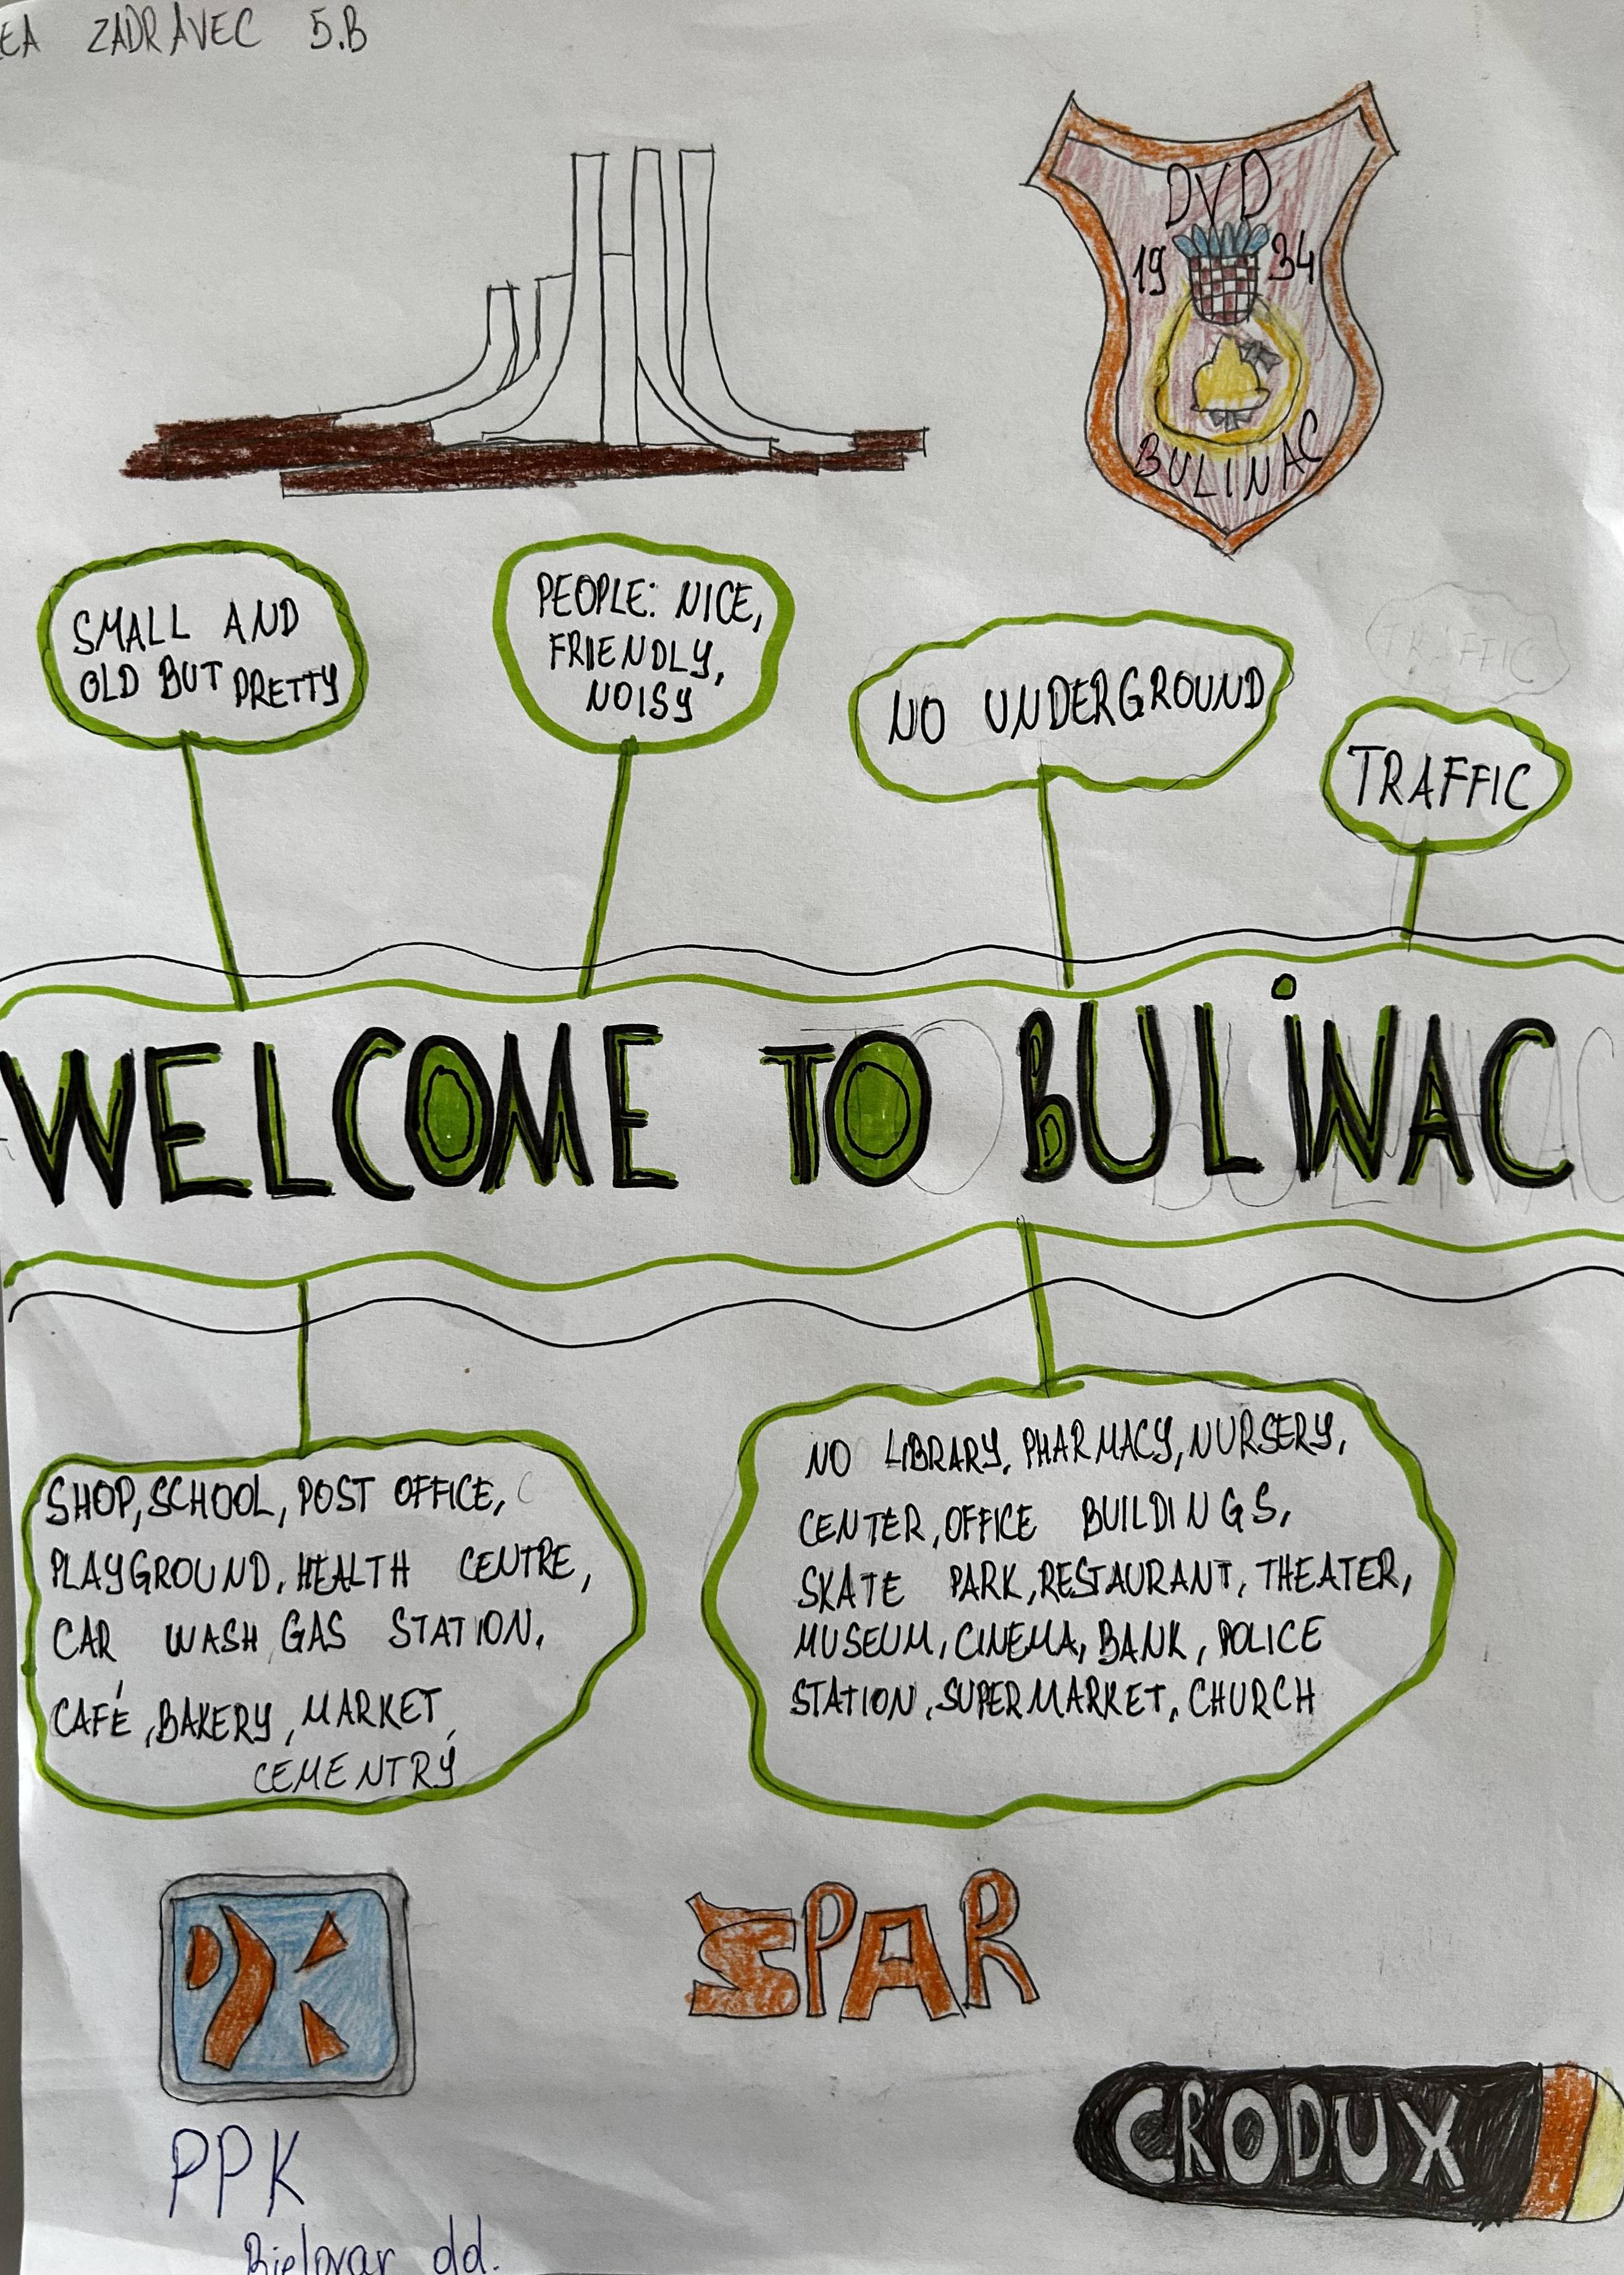 EA ZADRAVEC 5.B
DVD
19 34
BULINAC
SMALL AND
OLD BUT PRETTY
PEOPLE: NICE,
FRIENDLY,
NOISY
NO UNDERGROUND
TRAFFIC
TRAFFIC
WELCOME TO BULINAC
SHOP, SCHOOL, POST OFFICE,
PLAYGROUND, HEALTH CENTRE,
CAR WASH, GAS STATION,
CAFÉ, BAKERY, MARKET,
CEMENTRY
NO LIBRARY, PHARMACY, NURSERY,
CENTER, OFFICE BUILDINGS,
SKATE PARK, RESTAURANT, THEATER,
MUSEUM, CINEMA, BANK, POLICE
STATION, SUPERMARKET, CHURCH
SPAR
CRODUX
PPK
Bjelovar dd.